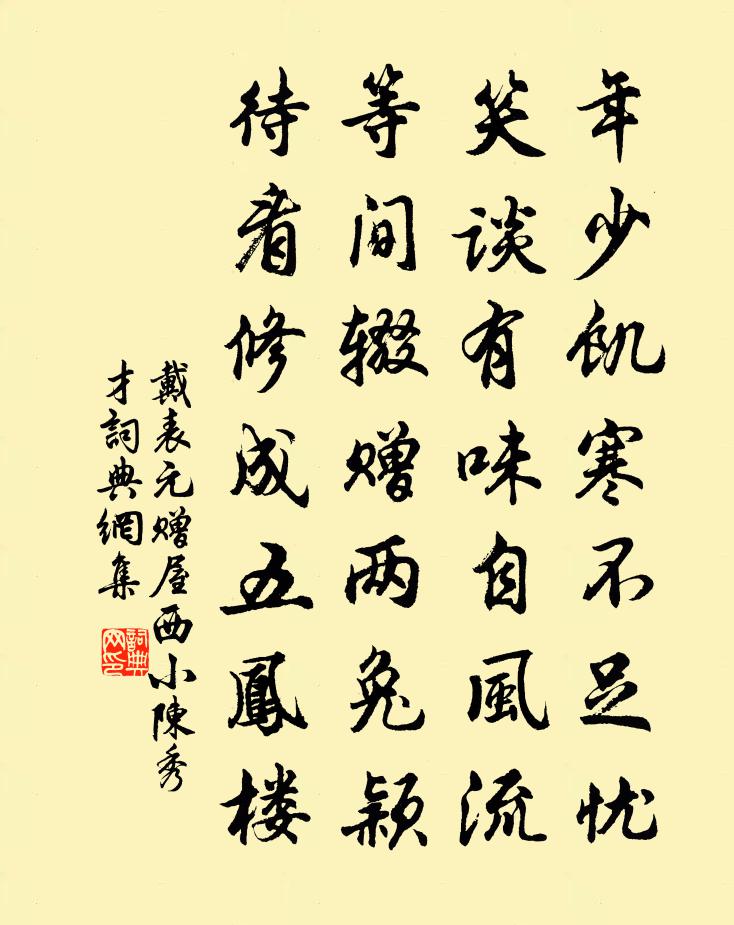 年少飢寒不足忧
笑谈有味自風流
等间辍赠两兔颖
待看修成五鳳楼
戴表元赠屋西小陳秀
才詞典網集
詞典
网印